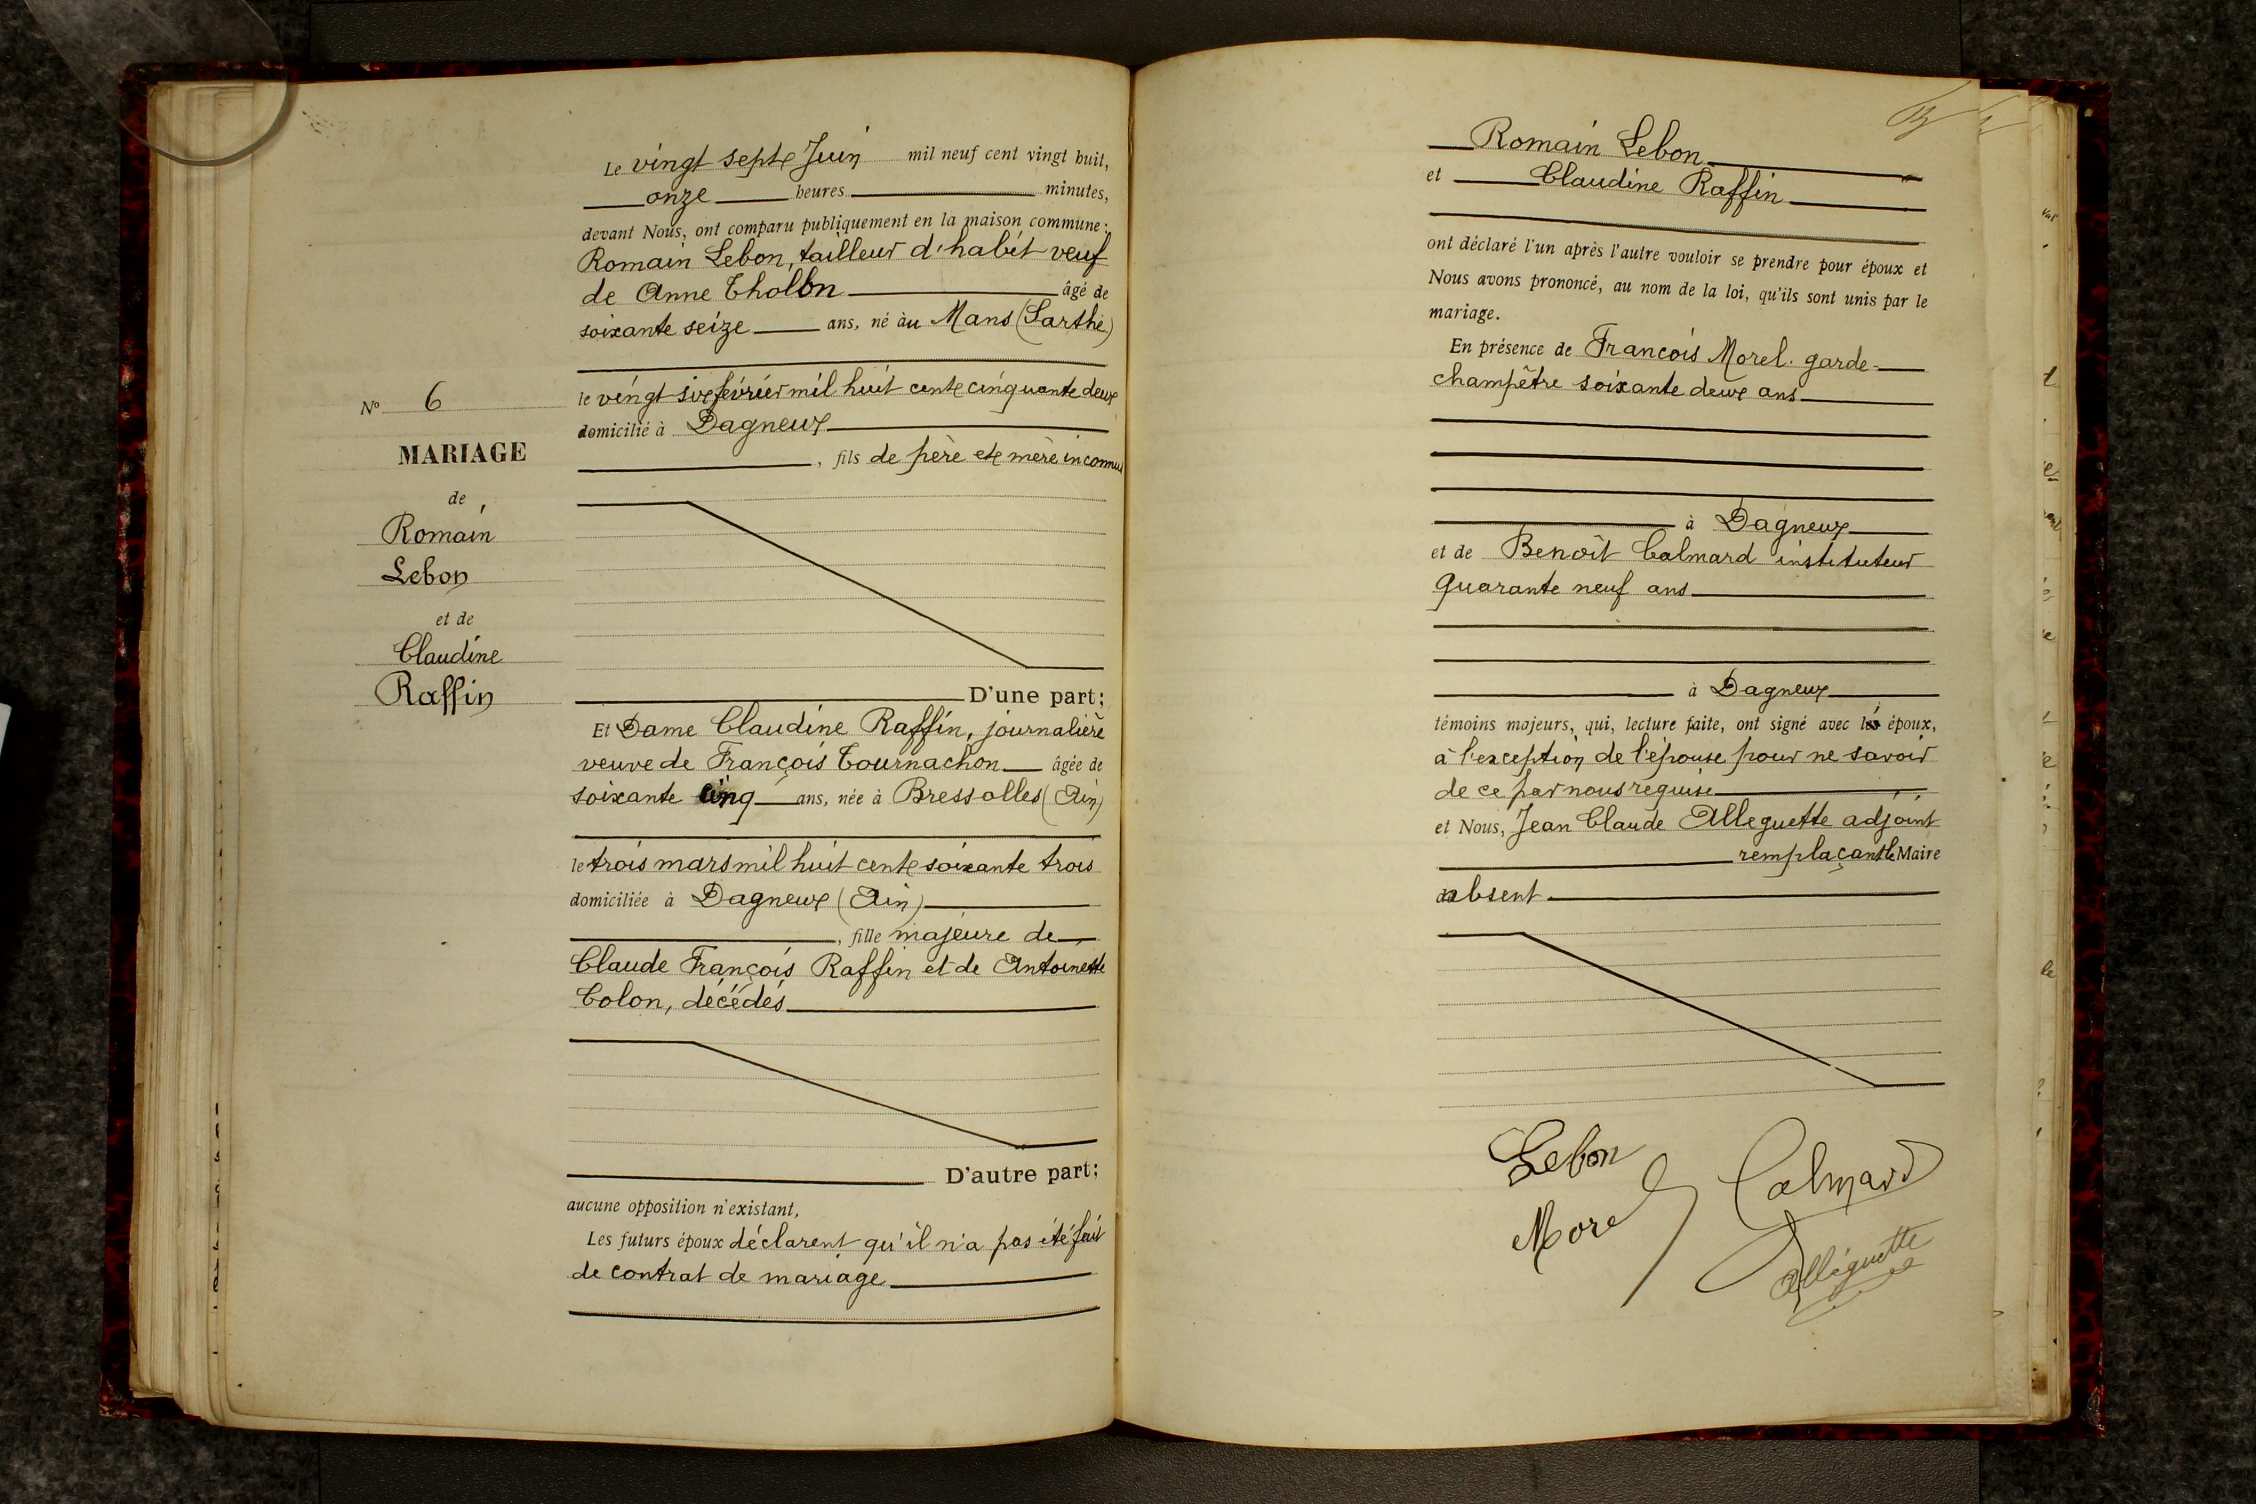 Le vingt sept Juin mil neuf cent vingt huit,
onze heures minutes,
devant Nous, ont comparu publiquement en la maison commune :
Romain Lebon, tailleur d'habit veuf
de Anne Thollon âgé de
soixante seize ans, né au Mans (Sarthe)
le vingt six février mil huit cent cinquante deux
domicilié à Dagneux
, fils de père et mère inconnus
D'une part;
Et Dame Claudine Raffin, journalière
veuve de François Tournachon âgée de
soixante cinq ans, née à Bressolles (Ain)
le trois mars mil huit cent soixante trois
domiciliée à Dagneux (Ain)
, fille majeure de
Claude François Raffin et de Antoinette
Colon, décédés
D'autre part;
aucune opposition n'existant,
Les futurs époux déclarent qu'il n'a pas été fait
de contrat de mariage
N° 6
MARIAGE
de
Romain
Lebon
et de
Claudine
Raffin
Romain Lebon
et Claudine Raffin
ont déclaré l'un après l'autre vouloir se prendre pour époux et
Nous avons prononcé, au nom de la loi, qu'ils sont unis par le
mariage.
En présence de François Morel. garde
champêtre soixante deux ans
à Dagneux
et de Benoît Calmard instituteur
quarante neuf ans
à Dagneux
témoins majeurs, qui, lecture faite, ont signé avec les époux,
à l'exception de l'épouse pour ne savoir
de ce par nous requise
et Nous, Jean Claude Alleguette adjoint
remplaçant le Maire
absent
Lebon
Morel
Calmard
Alléguette